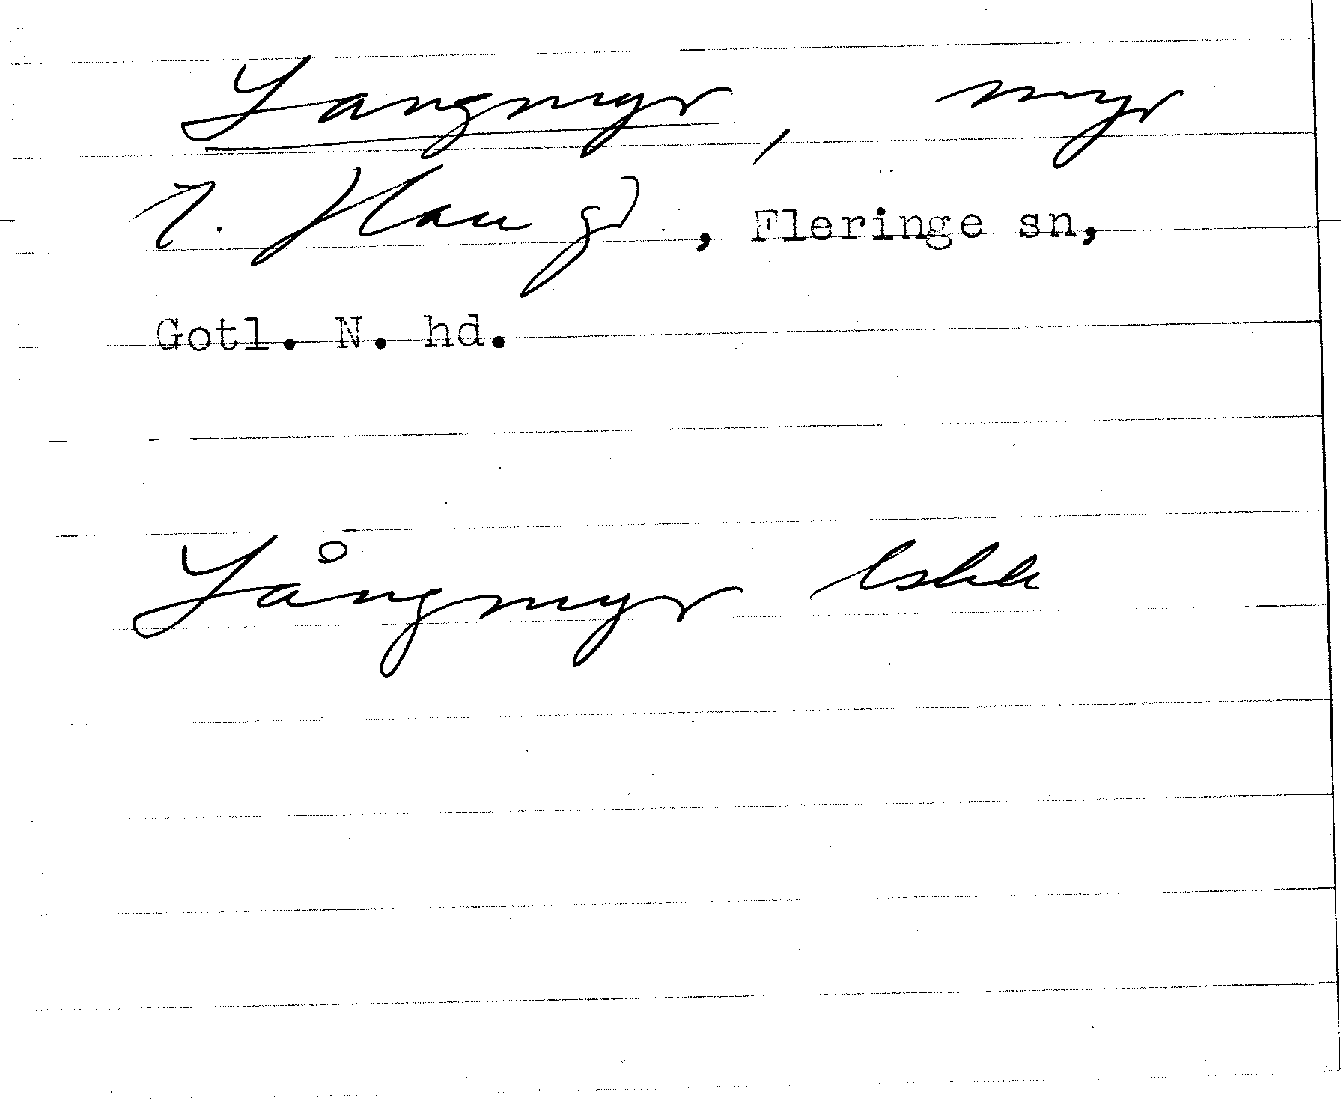 Langmyr, myr
T. Hau gd, Fleringe sn,
Gotl. N. hd.
Långmyr